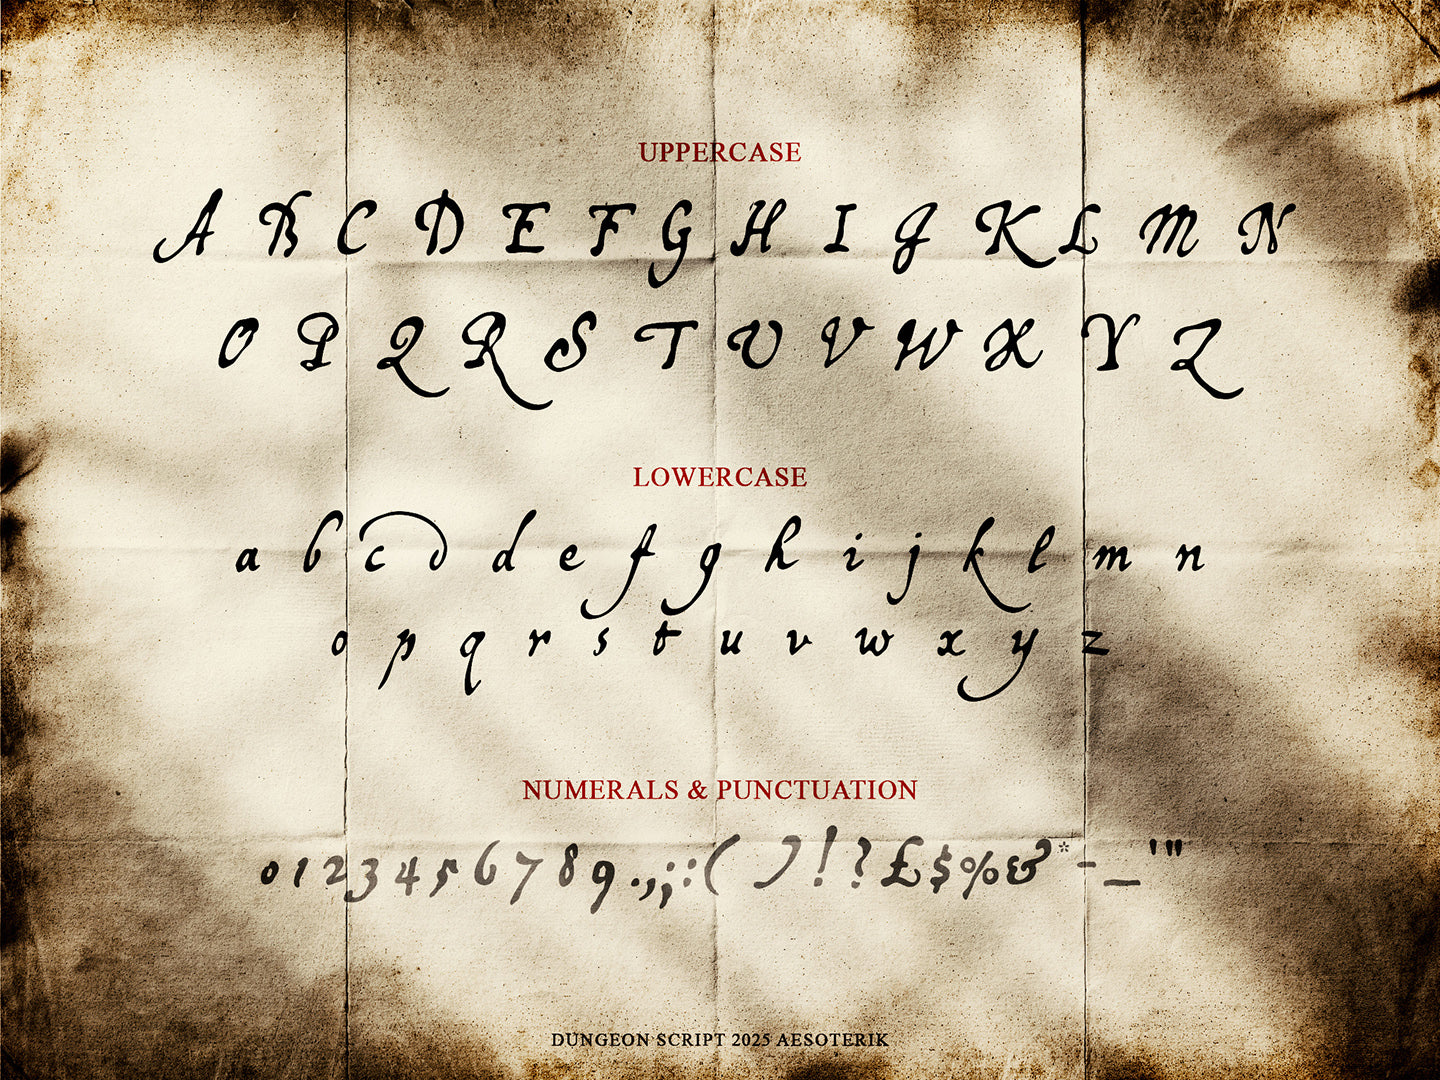 UPPERCASE
A B C D E F G H I J K L M N
O P Q R S T U V W X Y Z
LOWERCASE
a b c d d e f g h i j k l m n
o p q r s t u v w x y z
NUMERALS & PUNCTUATION
0 1 2 3 4 5 6 7 8 9 . , ; : ( ) ! ? £ $ % & * - _ ' "
DUNGEON SCRIPT 2025 AESOTERIK